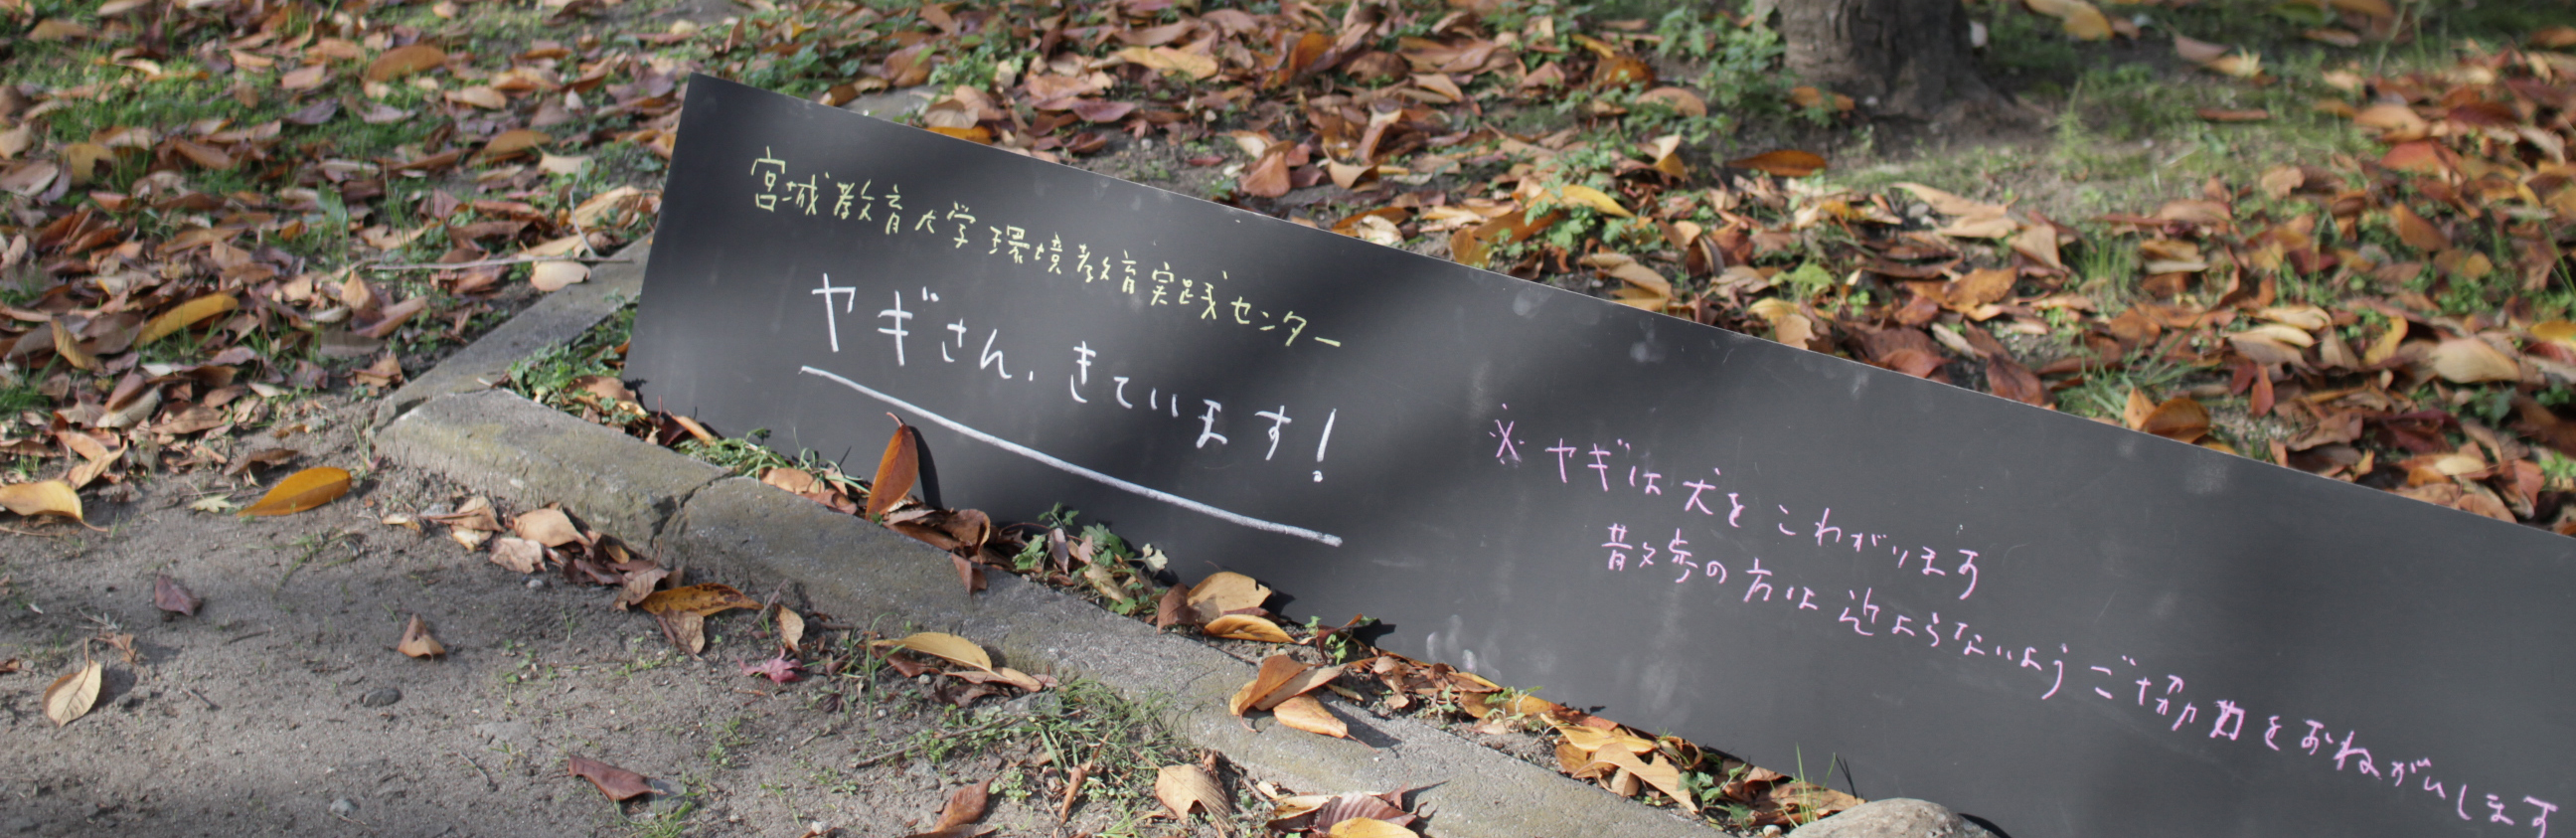 宮城教育大学環境教育実践センター
ヤギさん、きています!
※ヤギは犬をこわがります
散歩の方は近よらないようご協力をおねがいします